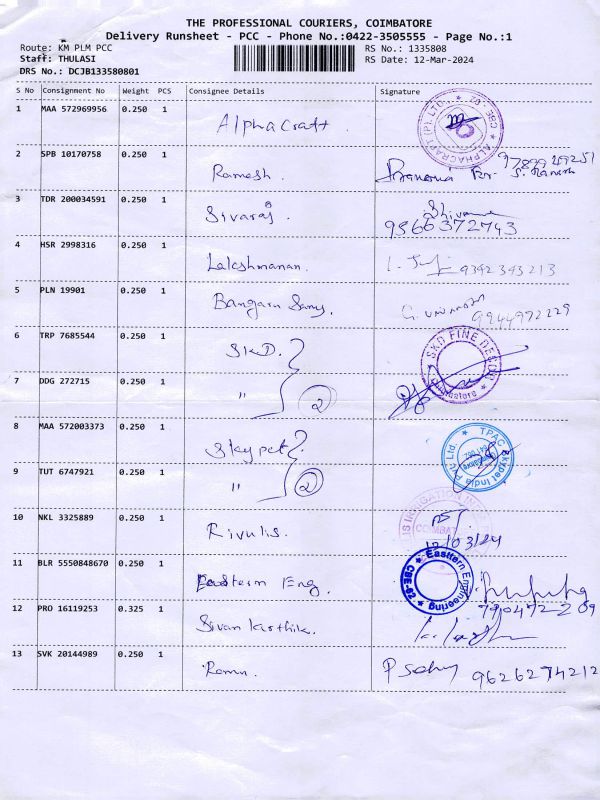 THE PROFESSIONAL COURIERS, COIMBATORE
Delivery Runsheet - PCC - Phone No.:0422-3505555 - Page No.:1
Route: KM PLM PCC
RS No.: 1335808
Staff: THULASI
RS Date: 12-Mar-2024
DRS No.: DCJB133580801
S No Consignment No Weight PCS Consignee Details Signature
1 MAA 572969956 0.250 1 Alphacraft
ALPHACRAFT (P) LTD. CBE - 02
2 SPB 10170758 0.250 1 Ramesh.
3 TDR 200034591 0.250 1 Sivaraj.
9566372743
4 HSR 2998316 0.250 1 Lakshmanan.
9342343213
5 PLN 19901 0.250 1 Bangaru Samy.
9944972229
6 TRP 7685544 0.250 1 SKD.
7 DDG 272715 0.250 1 " 2
8 MAA 572003373 0.250 1 Skypet
9 TUT 6747921 0.250 1 " 2
10 NKL 3325889 0.250 1 Rivulis.
12/03/24
11 BLR 5550848670 0.250 1 Eastern Eng.
Eastern Engineering CBE-29
12 PRO 16119253 0.325 1 Sivan Karthik.
13 SVK 20144989 0.250 1 Raman.
9626274212